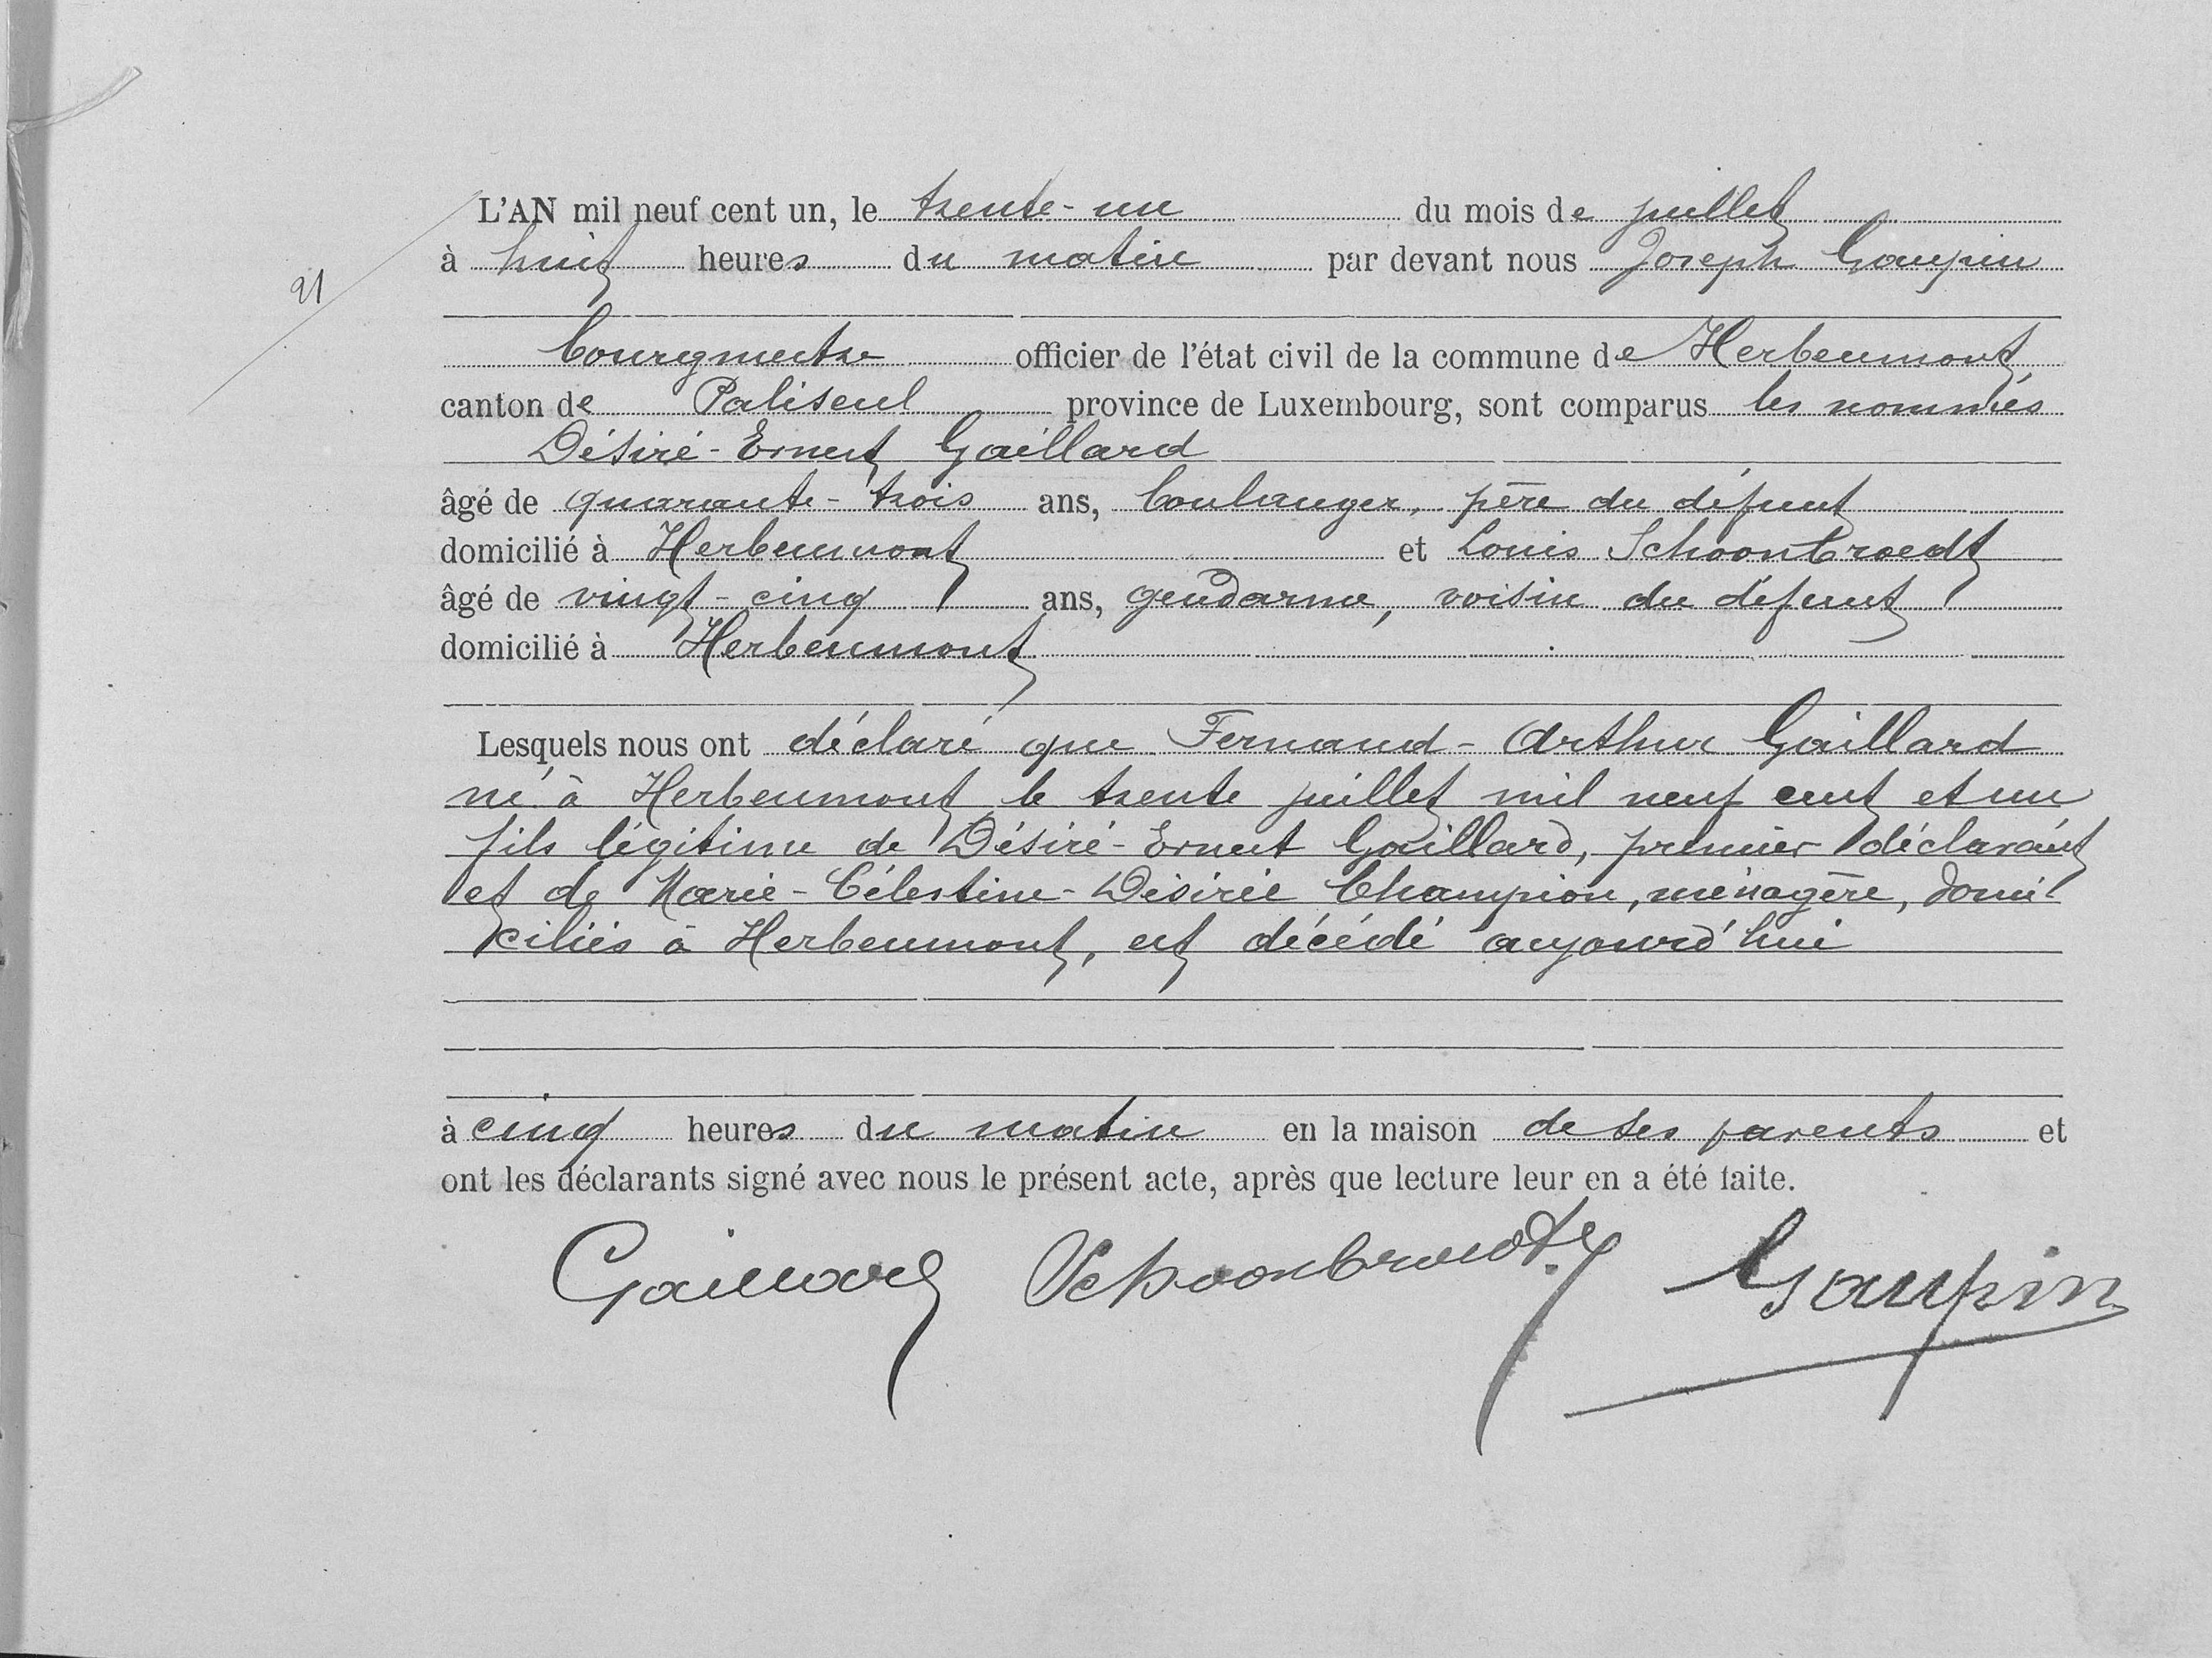 21
L'AN mil neuf cent un, le trente-un du mois de juillet
à huit heures du matin par devant nous Joseph Gaupin
bourgmestre officier de l'état civil de la commune de Herbeumont
canton de Paliseul province de Luxembourg, sont comparus les nommés
Désiré-Ernest Gaillard
âgé de quarante-trois ans, boulanger, père du défunt
domicilié à Herbeumont et Louis Schoonbroedt
âgé de vingt-cinq ans, gendarme, voisin du défunt
domicilié à Herbeumont
Lesquels nous ont déclaré que Fernand-Arthur Gaillard
né à Herbeumont le trente juillet mil neuf cent et un
fils légitime de Désiré-Ernest Gaillard, premier déclarant
et de Marie-Célestine-Désirée Champion, ménagère, domi-
ciliés à Herbeumont, est décédé aujourd'hui
à cinq heures du matin en la maison de ses parents et
ont les déclarants signé avec nous le présent acte, après que lecture leur en a été faite.
Gaillard Schoonbroedt Gaupin